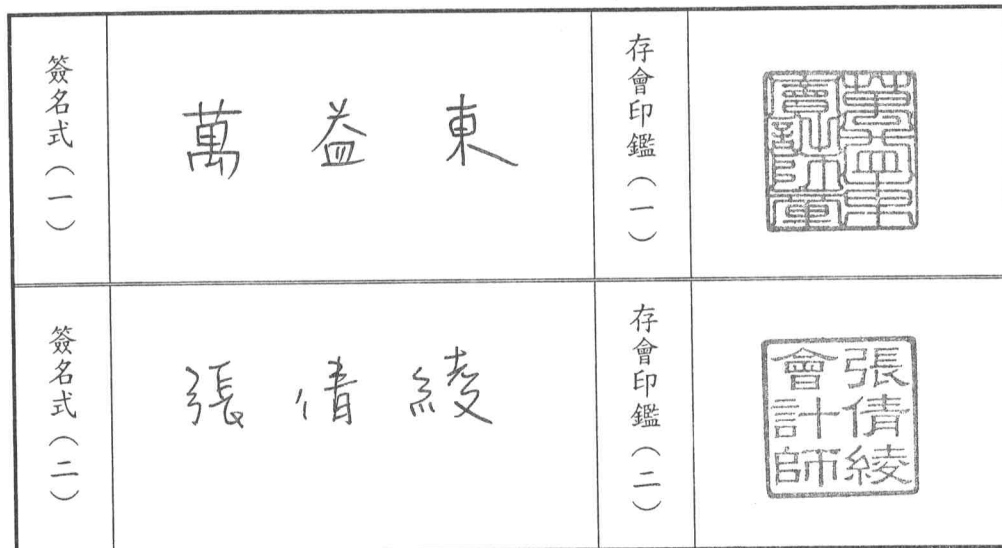 簽名式（一）
萬益東
存會印鑑（一）
萬益東
會計師章
簽名式（二）
張倩綾
存會印鑑（二）
張倩綾
會計師